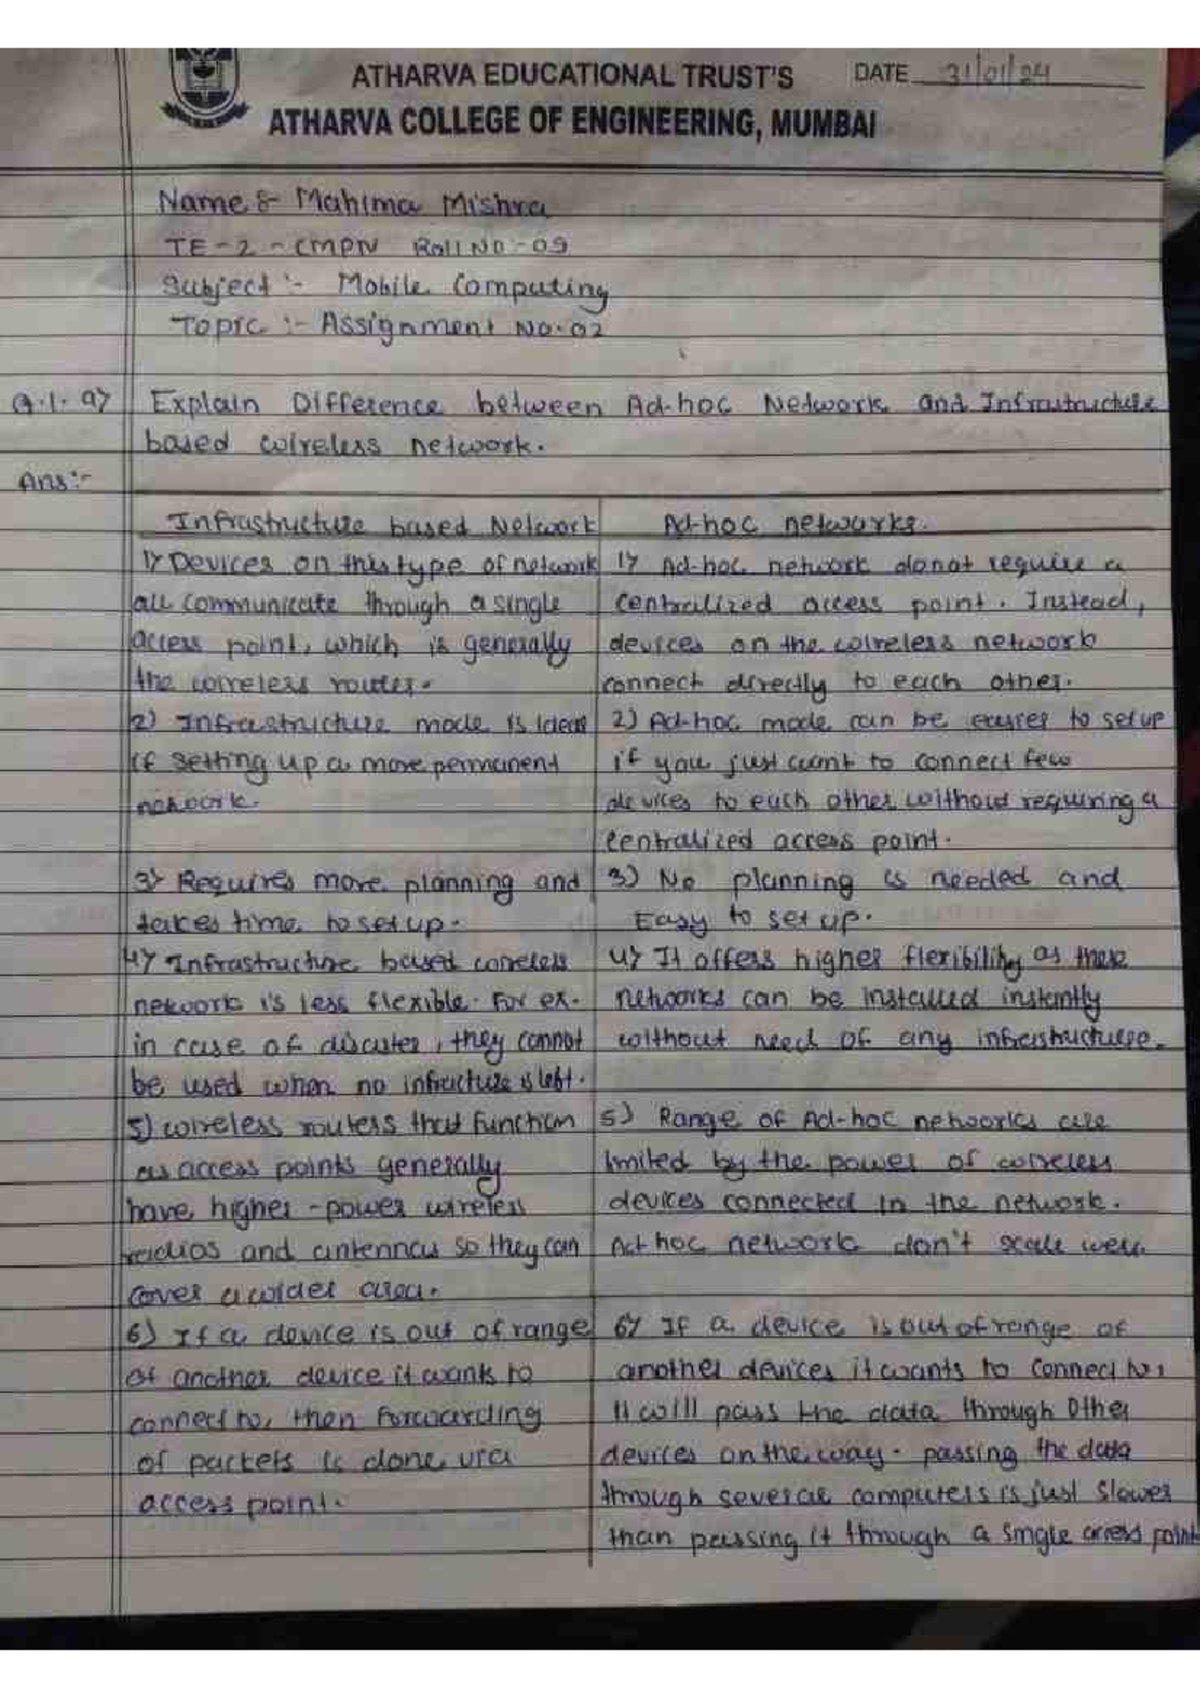 ATHARVA EDUCATIONAL TRUST'S
DATE 31/01/24
ATHARVA COLLEGE OF ENGINEERING, MUMBAI
Name :- Mahima Mishra
TE-2-CMPN Roll No:-09
Subject :- Mobile Computing
Topic :- Assignment No.02
Q.1.a) Explain Difference between Ad-hoc Network and Infrastructure
based wireless network.
Ans:-
Infrastructure based Network
1) Devices on this type of network
all communicate through a single
access point, which is generally
the wireless router.
2) Infrastructure mode is ideal
if setting up a more permanent
network.
3) Requires more planning and
takes time to set up.
4) Infrastructure based wireless
network is less flexible. For ex.
in case of disaster, they cannot
be used when no infructure is left.
5) wireless routers that function
as access points generally
have higher-power wireless
radios and antennas so they can
cover a wider area.
6) If a device is out of range
of another device it wants to
connect to, then forwarding
of packets is done via
access point.
Ad-hoc networks.
1) Ad-hoc network donot require a
centralized access point. Instead,
devices on the wireless network
connect directly to each other.
2) Ad-hoc mode can be easier to setup
if you just want to connect few
devices to each other without requiring a
centralized access point.
3) No planning is needed and
Easy to set up.
4) It offers higher flexibility as these
networks can be installed instantly
without need of any infrastructure.
5) Range of Ad-hoc networks are
limited by the power of wireless
devices connected in the network.
Ad hoc network don't scale well.
6) If a device is out of range of
another devices it wants to connect to,
it will pass the data through Other
devices on the way. passing the data
through several computers is just slower
than passing it through a single access point